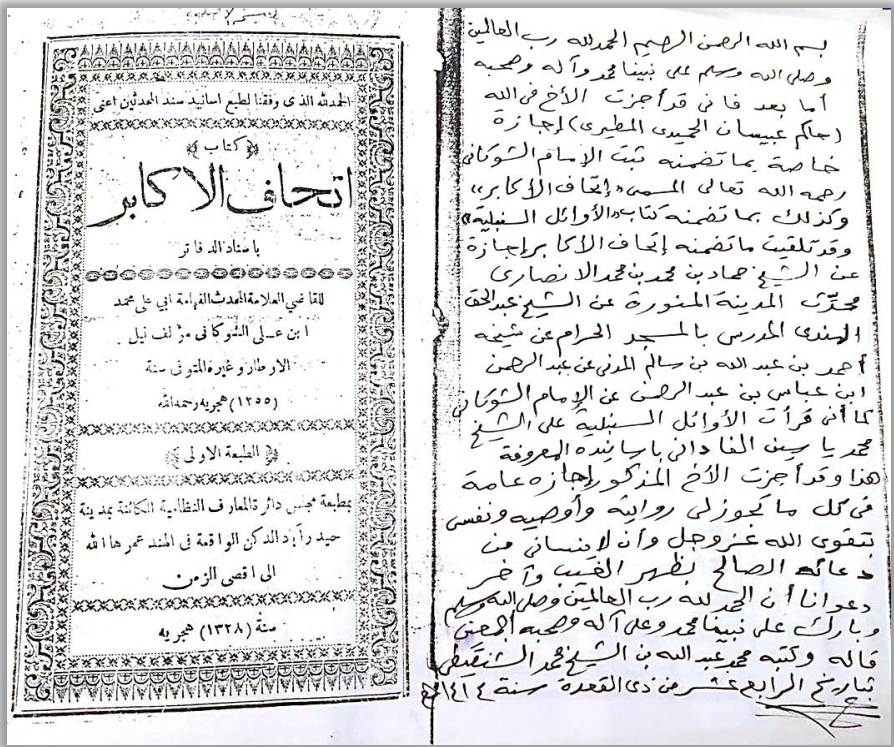 بسم الله الرحمن الرحيم الحمد لله رب العالمين
وصلى الله وسلم على نبينا محمد وآله وصحبه
أما بعد فاني قد أجزت الأخ في الله
(حاكم عبيسان الحميدي المطيري) إجازة
خاصة بما تضمنه ثبت الإمام الشوكاني
رحمه الله تعالى المسمى «إتحاف الأكابر»
وكذلك بما تضمنه كتاب «الأوائل السنبلية»
وقد تلقيت ما تضمنه إتحاف الأكابر إجازة
عن الشيخ حماد بن محمد بن محمد الانصاري
محدّث المدينة المنورة عن الشيخ عبد الحق
الهندي المدرس بالمسجد الحرام عن شيخه
أحمد بن عبد الله بن سالم المدني عن عبد الرحمن
ابن عباس بن عبد الرحمن عن الإمام الشوكاني
كما أني قرأت الأوائل السنبلية على الشيخ
محمد ياسين الفاداني بأسانيده المعروفة
هذا وقد أجزت الأخ المذكور إجازة عامة
في كل ما تجوز لي روايته وأوصيه ونفسي
بتقوى الله عز وجل وأن لا ينساني من
دعائه الصالح بظهر الغيب وآخر
دعوانا أن الحمد لله رب العالمين وصلى الله وسلم
وبارك على نبينا محمد وعلى آله وصحبه أجمعين
قاله وكتبه محمد عبد الله بن الشيخ محمد الشنقيطي
بتاريخ الرابع عشر من ذي القعدة سنة ١٤١٤ هـ
الحمد لله الذى وفقنا لطبع اسانيد سند المحدثين اعنى
﴿ كتاب ﴾
اتحاف الاكابر
باسناد الدفاتر
للقاضي العلامة المحدث الفهامة ابي على محمد
ابن على الشوكانى مؤلف نيل
الاوطار وغيره المتوفى سنة
(١٢٥٥) هجريه رحمه الله
﴿ الطبعة الاولى ﴾
بمطبعة مجلس دائرة المعارف النظامية الكائنة بمدينة
حيدرآباد الدكن الواقعة فى الهند عمرها الله
الى اقصى الزمن
سنة (١٣٢٨) هجريه